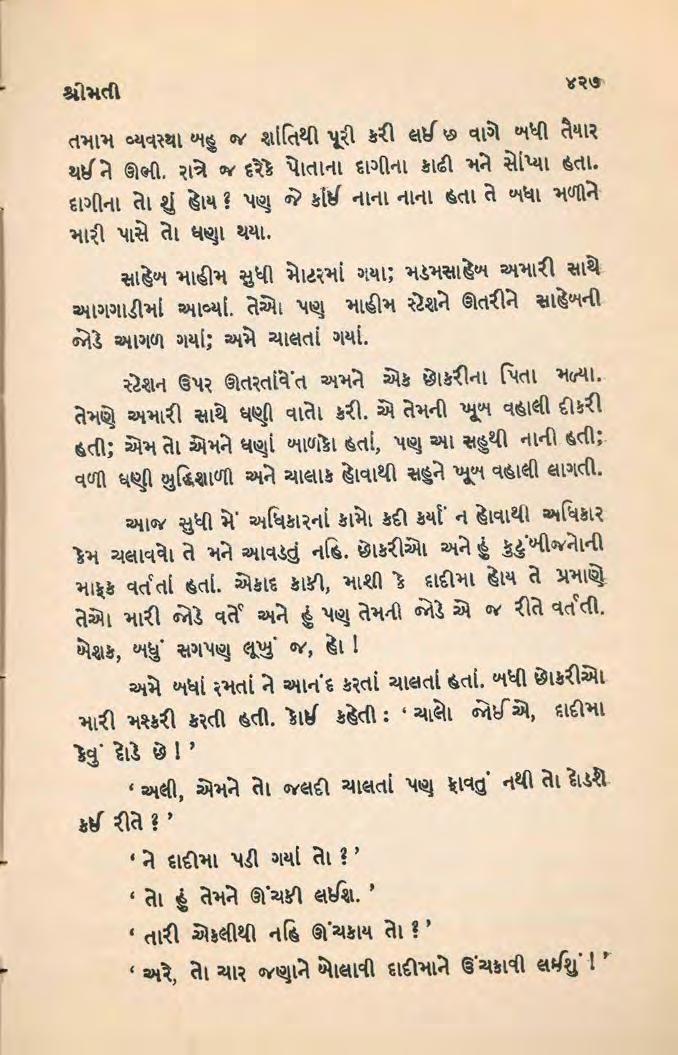 શ્રીમતી
૪૨૭
તમામ વ્યવસ્થા બહુ જ શાંતિથી પૂરી કરી લઈ છ વાગે બધી તૈયાર
થઈ ને ઊભી. રાત્રે જ દરેકે પોતાના દાગીના કાઢી મને સોંપ્યા હતા.
દાગીના તો શું હોય ? પણ જે કાંઈ નાના નાના હતા તે બધા મળીને
મારી પાસે તો ઘણા થયા.
સાહેબ માહીમ સુધી મોટરમાં ગયા; મડમસાહેબ અમારી સાથે
આગગાડીમાં આવ્યાં. તેઓ પણ માહીમ સ્ટેશને ઊતરીને સાહેબની
જોડે આગળ ગયાં; અમે ચાલતાં ગયાં.
સ્ટેશન ઉપર ઊતરતાંવેંત અમને એક છોકરીના પિતા મળ્યા.
તેમણે અમારી સાથે ઘણી વાતો કરી. એ તેમની ખૂબ વહાલી દીકરી
હતી; એમ તો એમને ઘણાં બાળકો હતાં, પણ આ સહુથી નાની હતી;
વળી ઘણી બુદ્ધિશાળી અને ચાલાક હોવાથી સહુને ખૂબ વહાલી લાગતી.
આજ સુધી મેં અધિકારનાં કામો કદી કર્યાં ન હોવાથી અધિકાર
કેમ ચલાવવો તે મને આવડતું નહિ. છોકરીઓ અને હું કુટુંબીજનોની
માફક વર્તતાં હતાં. એકાદ કાકી, માશી કે દાદીમા હોય તે પ્રમાણે
તેઓ મારી જોડે વર્તે અને હું પણ તેમની જોડે એ જ રીતે વર્તતી.
બેશક, બધું સગપણ લૂખું જ, હો !
અમે બધાં રમતાં ને આનંદ કરતાં ચાલતાં હતાં. બધી છોકરીઓ
મારી મશ્કરી કરતી હતી. કોઈ કહેતી : ‘ ચાલો જોઈએ, દાદીમા
કેવું દોડે છે ! ’
‘ અલી, એમને તો જલદી ચાલતાં પણ ફાવતું નથી તો દોડશે
કઈ રીતે ? ’
‘ ને દાદીમા પડી ગયાં તો ? ’
‘ તો હું તેમને ઊંચકી લઈશ. ’
‘ તારી એકલીથી નહિ ઊંચકાય તો ? ’
‘ અરે, તો ચાર જણાને બોલાવી દાદીમાને ઉંચકાવી લઈશું ! ’